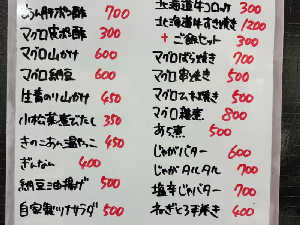 あん肝ポン酢 700
マグロ皮ポン酢 300
マグロ山かけ 600
マグロ納豆 600
生青のり山かけ 450
小松菜煮びたし 350
きのこあん温やっこ 450
ぎんなん 400
納豆油揚げ 500
自家製ツナサラダ 500
北海道牛コロッケ 300
北海道牛すき焼き 1200
+ご飯セット 300
マグロほら焼き 700
マグロ串焼き 500
マグロステーキ焼き 500
マグロ 800
あら煮 500
じゃがバター 600
じゃがタルタル 700
塩辛じゃがバター 700
ねぎとろ手巻き 400